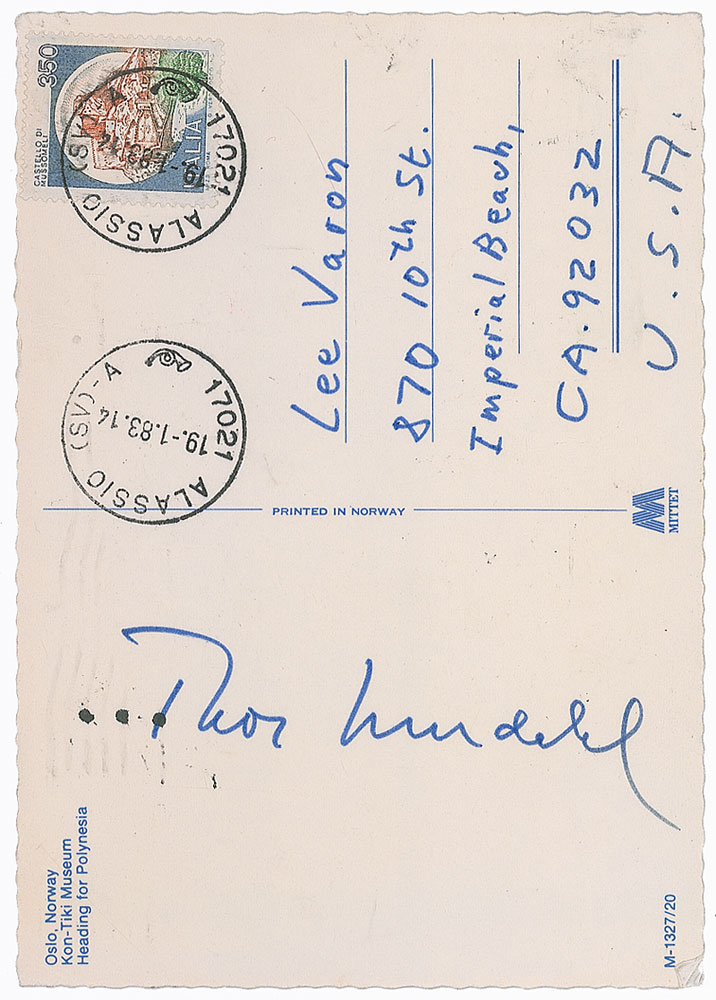 350
CASTELLO DI
MUSSOMELI
ITALIA
17021 ALASSIO (SV) - A
19.-1.83.14
17021 ALASSIO (SV) - A
19.-1.83.14
Lee Varon
870 10th St.
Imperial Beach,
CA. 92032
U.S.A.
PRINTED IN NORWAY
MITTET
Thor Heyerdahl
Oslo, Norway
Kon-Tiki Museum
Heading for Polynesia
M-1327/20